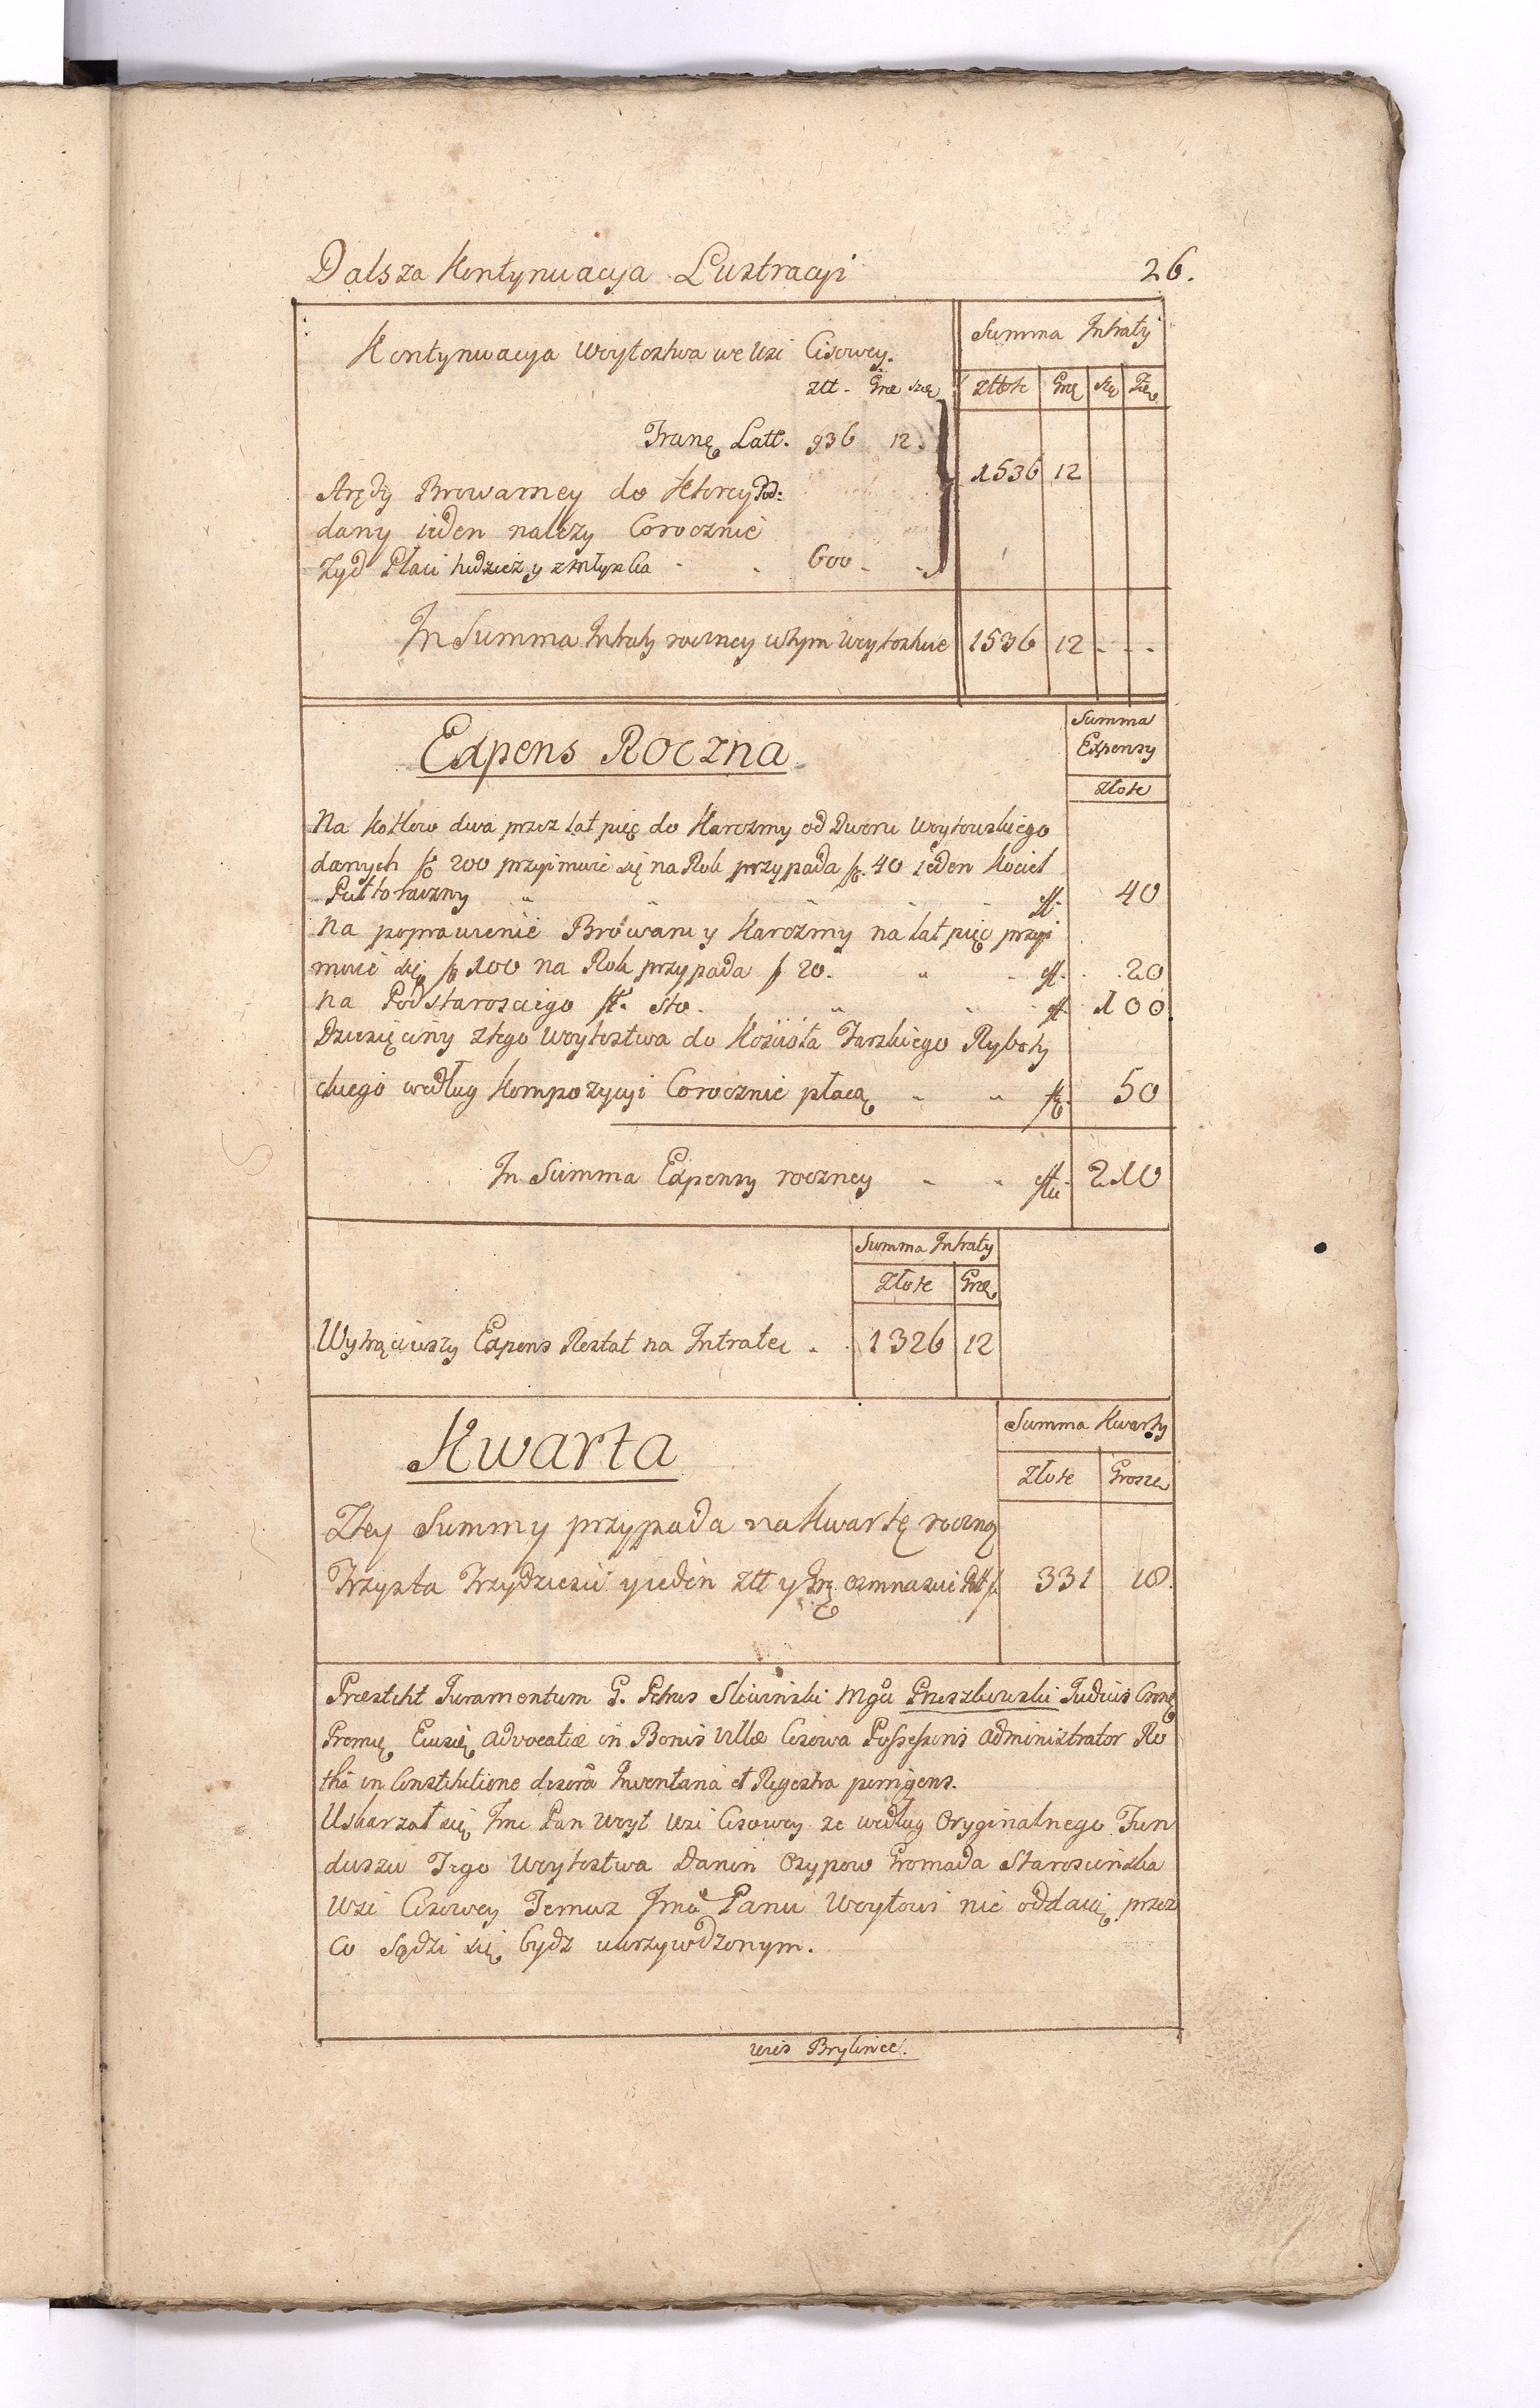 Dalsza Kontynuacya Lustracyi 26.
Kontynuacya Woytoztwa we Wsi Cisowey. Summa Intraty
złł. Grae szeę złote Grę Szę Fię
Tranę Latt. 936 12. 1536 12
Arędy Browarney do Ktorey Pod:
dany ieden nalezy Corocznie
Zyd Płaci tudziez y z Młynka 600
In Summa Intraty roczney w tym Woytoztwie 1536 12 - - -
Expens Roczna Summa Expensy
złote
Na Kotłow dwa przez lat pięc do Karczmy od Dworu Woytowskiego
danych fl. 200 przyimuie się na Rok przypada fl. 40 ieden Kocieł
Puttoraczny fl. 40
na poprawienie Browaru y Karczmy na lat pięc przyi
muie się fl 100 na Rok przypada f 20. fl. 20
na Podstarosciego fl. sto. fl. 100
Dziesięciny z tego Woytostwa do Kościoła Farskiego Ryboty
ckiego według Kompozycyi Corocznie płacą fl. 50
In Summa Expensy roczney 210
Summa Intraty
Złote Grae
Wytrąciwszy Expens Restat na Intratę 1326 12
Kwarta Summa Kwarty
Złote Grosze
Z tey Summy przypada na Kwartę roczną
Trzysta Trzydziesci y ieden złł y Grę osmnascie 331 18.
Præstitit Juramentum G. Petrus Sliwinski Mgci Pruszkowski Judicis
Premię Eiusię Advocatiæ in Bonis Villæ Cisowa Possessoris Administrator Ro
tha in Constitutione Inventaria et Regestra porrigens.
Uskarzał się Jmc Pan Woyt Wsi Cisowey ze według Oryginalnego Fun
duszu Tego Woytostwa Danin Osypow Gromada Starosciňska
Wsi Cisowey Temuz Jmć Panu Woytowi nie oddaią przez
co sądzi się bydz ukrzywdzonym.
Wies Brylince.